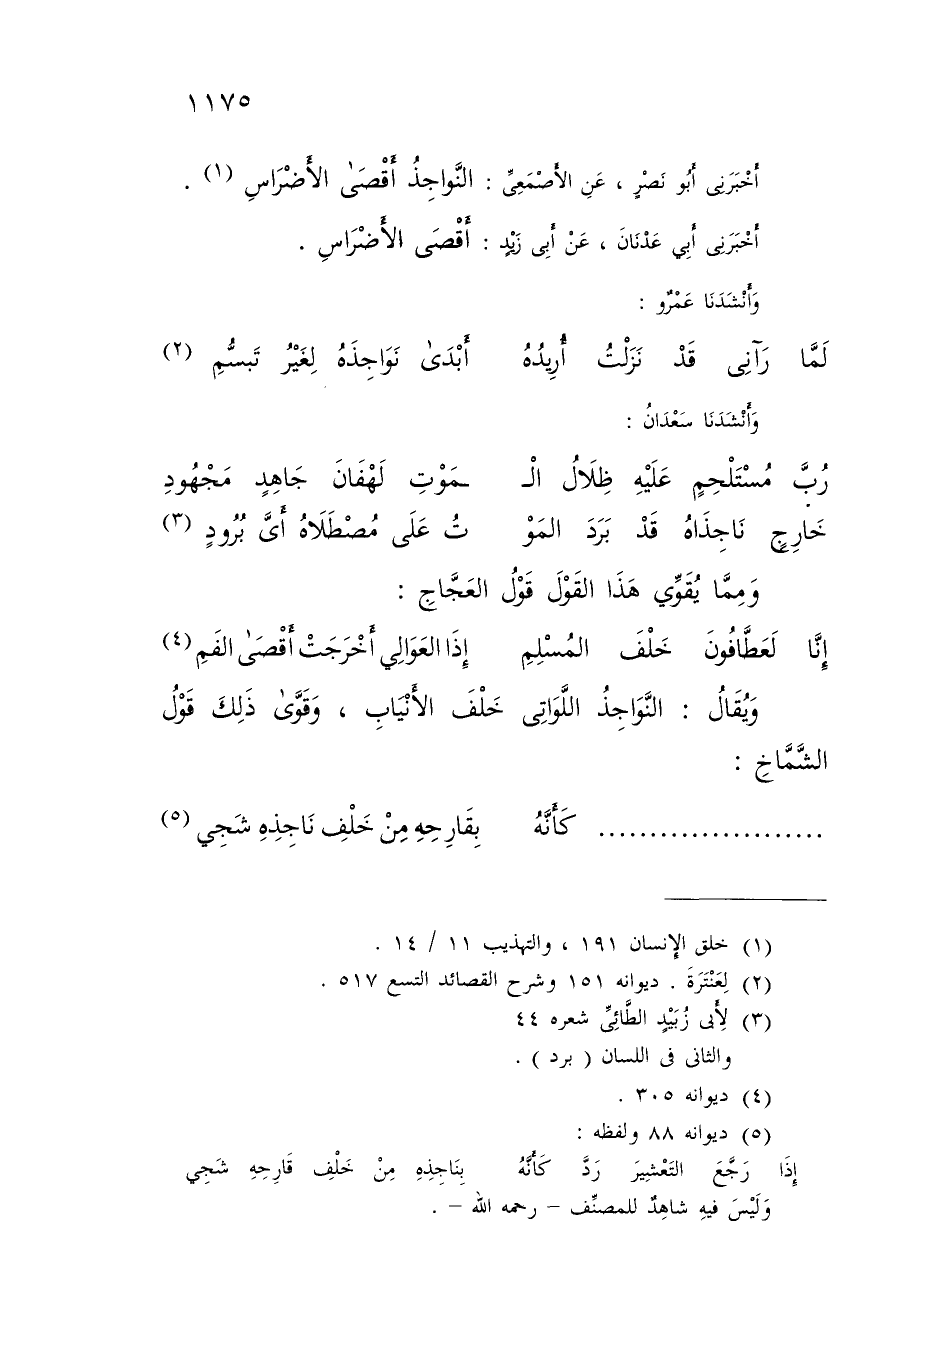 ١١٧٥
أَخْبَرَنِى أَبُو نَصْرٍ ، عَنِ الأَصْمَعِىِّ : النَّواجِذُ أَقْصَىٰ الأَضْرَاسِ (١) .
أَخْبَرَنِى أَبِي عَدْنَانَ ، عَنْ أَبِى زَيْدٍ : أَقْصَى الأَضْرَاسِ .
وَأَنْشَدَنَا عَمْرٌو :
لَمَّا رَآنِى قَدْ نَزَلْتُ أُرِيدُهُ أَبْدَىٰ نَوَاجِذَهُ لِغَيْرُ تَبسُّمِ (٢)
وَأَنْشَدَنَا سَعْدَانُ :
رُبَّ مُسْتَلْحِمٍ عَلَيْهِ ظِلَالُ الْـ ـمَوْتِ لَهْفَانَ جَاهِدٍ مَجْهُودِ
خَارِجٍ نَاجِذَاهُ قَدْ بَرَدَ المَوْ تُ عَلَى مُصْطَلَاهُ أَىَّ بُرُودٍ (٣)
وَمِمَّا يُقَوِّي هَذَا القَوْلَ قَوْلُ العَجَّاجِ :
إِنَّا لَعَطَّافُونَ خَلْفَ المُسْلِمِ إِذَا العَوَالِي أَخْرَجَتْ أَقْصَىٰ الفَمِ (٤)
وَيُقَالُ : النَّوَاجِذُ اللَّوَاتِى خَلْفَ الأَنْيَابِ ، وَقَوَّىٰ ذَلِكَ قَوْلُ
الشَّمَّاخِ :
...................... كَأَنَّهُ بِقَارِحِهِ مِنْ خَلْفِ نَاجِذِهِ شَجِي (٥)
(١) خلق الإنسان ١٩١ ، والتهذيب ١١ / ١٤ .
(٢) لِعَنْتَرَةَ . ديوانه ١٥١ وشرح القصائد التسع ٥١٧ .
(٣) لِأَبى زُبَيْدٍ الطَّائِىِّ شعره ٤٤
والثانى فى اللسان ( برد ) .
(٤) ديوانه ٣٠٥ .
(٥) ديوانه ٨٨ ولفظه :
إِذَا رَجَّعَ التَعْشِيرَ رَدَّ كَأَنَّهُ بِنَاجِذِهِ مِنْ خَلْفِ قَارِحِهِ شَجِي
وَلَيْسَ فيهِ شاهِدٌ للمصنِّف – رحمه الله – .